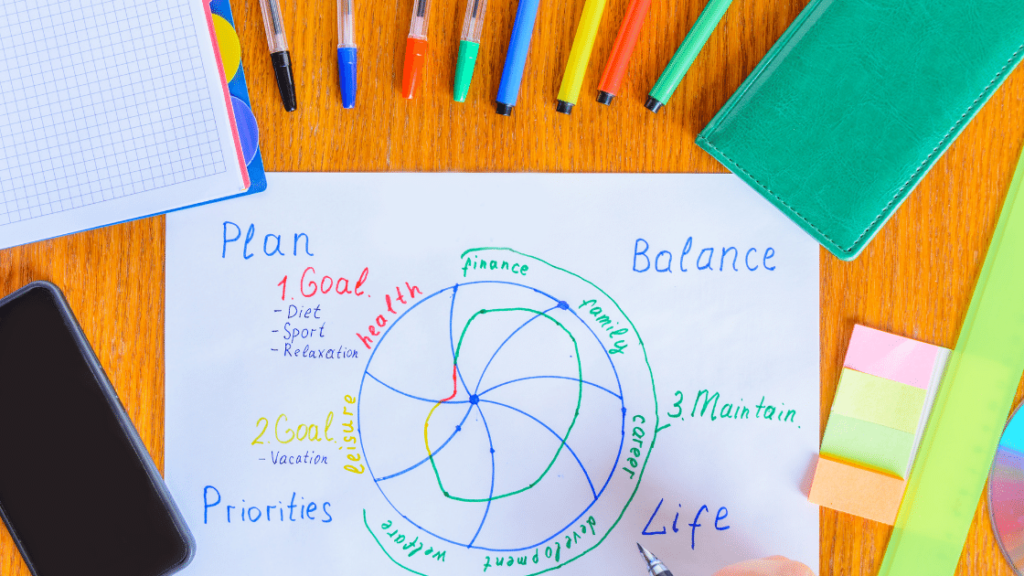 Plan
Balance
1. Goal.
- Diet
- Sport
- Relaxation
health
finance
family
career
development
welfare
leisure
2. Goal.
- Vacation
3. Maintain.
Priorities
Life